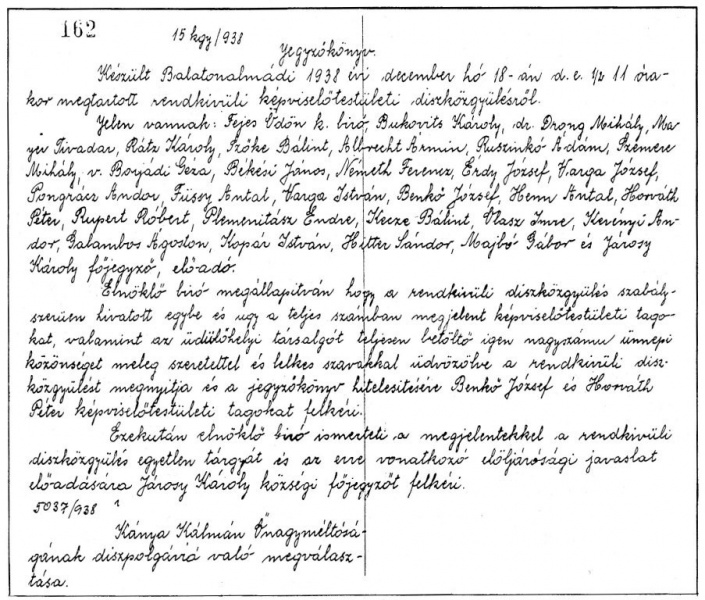 162
15 kgy/938
Jegyzőkönyv.
Készült Balatonalmádi 1938 évi december hó 18-án d. e. 1/2 11 óra-
kor megtartott rendkivüli képviselőtestületi diszközgyülésről.
Jelen vannak: Fejes Ödön k. biró, Bukovits Károly, dr. Drong Mihály, Ma-
yer Tivadar, Rátz Károly, Szőke Bálint, Albrecht Armin, Ruszinkó Ádám, Szemere
Mihály, v. Borjádi Géza, Békési János, Németh Ferenc, Erdy József, Varga József,
Pongrácz Andor, Füssy Antal, Varga István, Benkő József, Henn Antal, Horváth
Péter, Rupert Róbert, Plemenitász Endre, Kecze Bálint, Olasz Imre, Kerényi An-
dor, Galambos Ágoston, Kopár István, Hetter Sándor, Majbó Gábor és Járosy
Károly főjegyző, előadó.
Elnöklő biró megállapitván hogy a rendkivüli diszközgyülés szabály-
szerüen hivatott egybe és ugy a teljes számban megjelent képviselőtestületi tago-
kat, valamint az üdülőhelyi társalgót teljesen betöltő igen nagyszámu ünnepi
közönséget meleg szeretettel és lelkes szavakkal üdvözölve a rendkivüli disz-
közgyülést megnyitja és a jegyzőkönyv hitelesitésére Benkő József és Horváth
Péter képviselőtestületi tagokat felkéri.
Ezekután elnöklő biró ismerteti a megjelentekkel a rendkivüli
diszközgyülés egyetlen tárgyát és az erre vonatkozó elöljárósági javaslat
előadására Járosy Károly községi főjegyzőt felkéri.
5037/938
Kánya Kálmán Őnagyméltósá-
gának diszpolgárrá való megválasz-
tása.